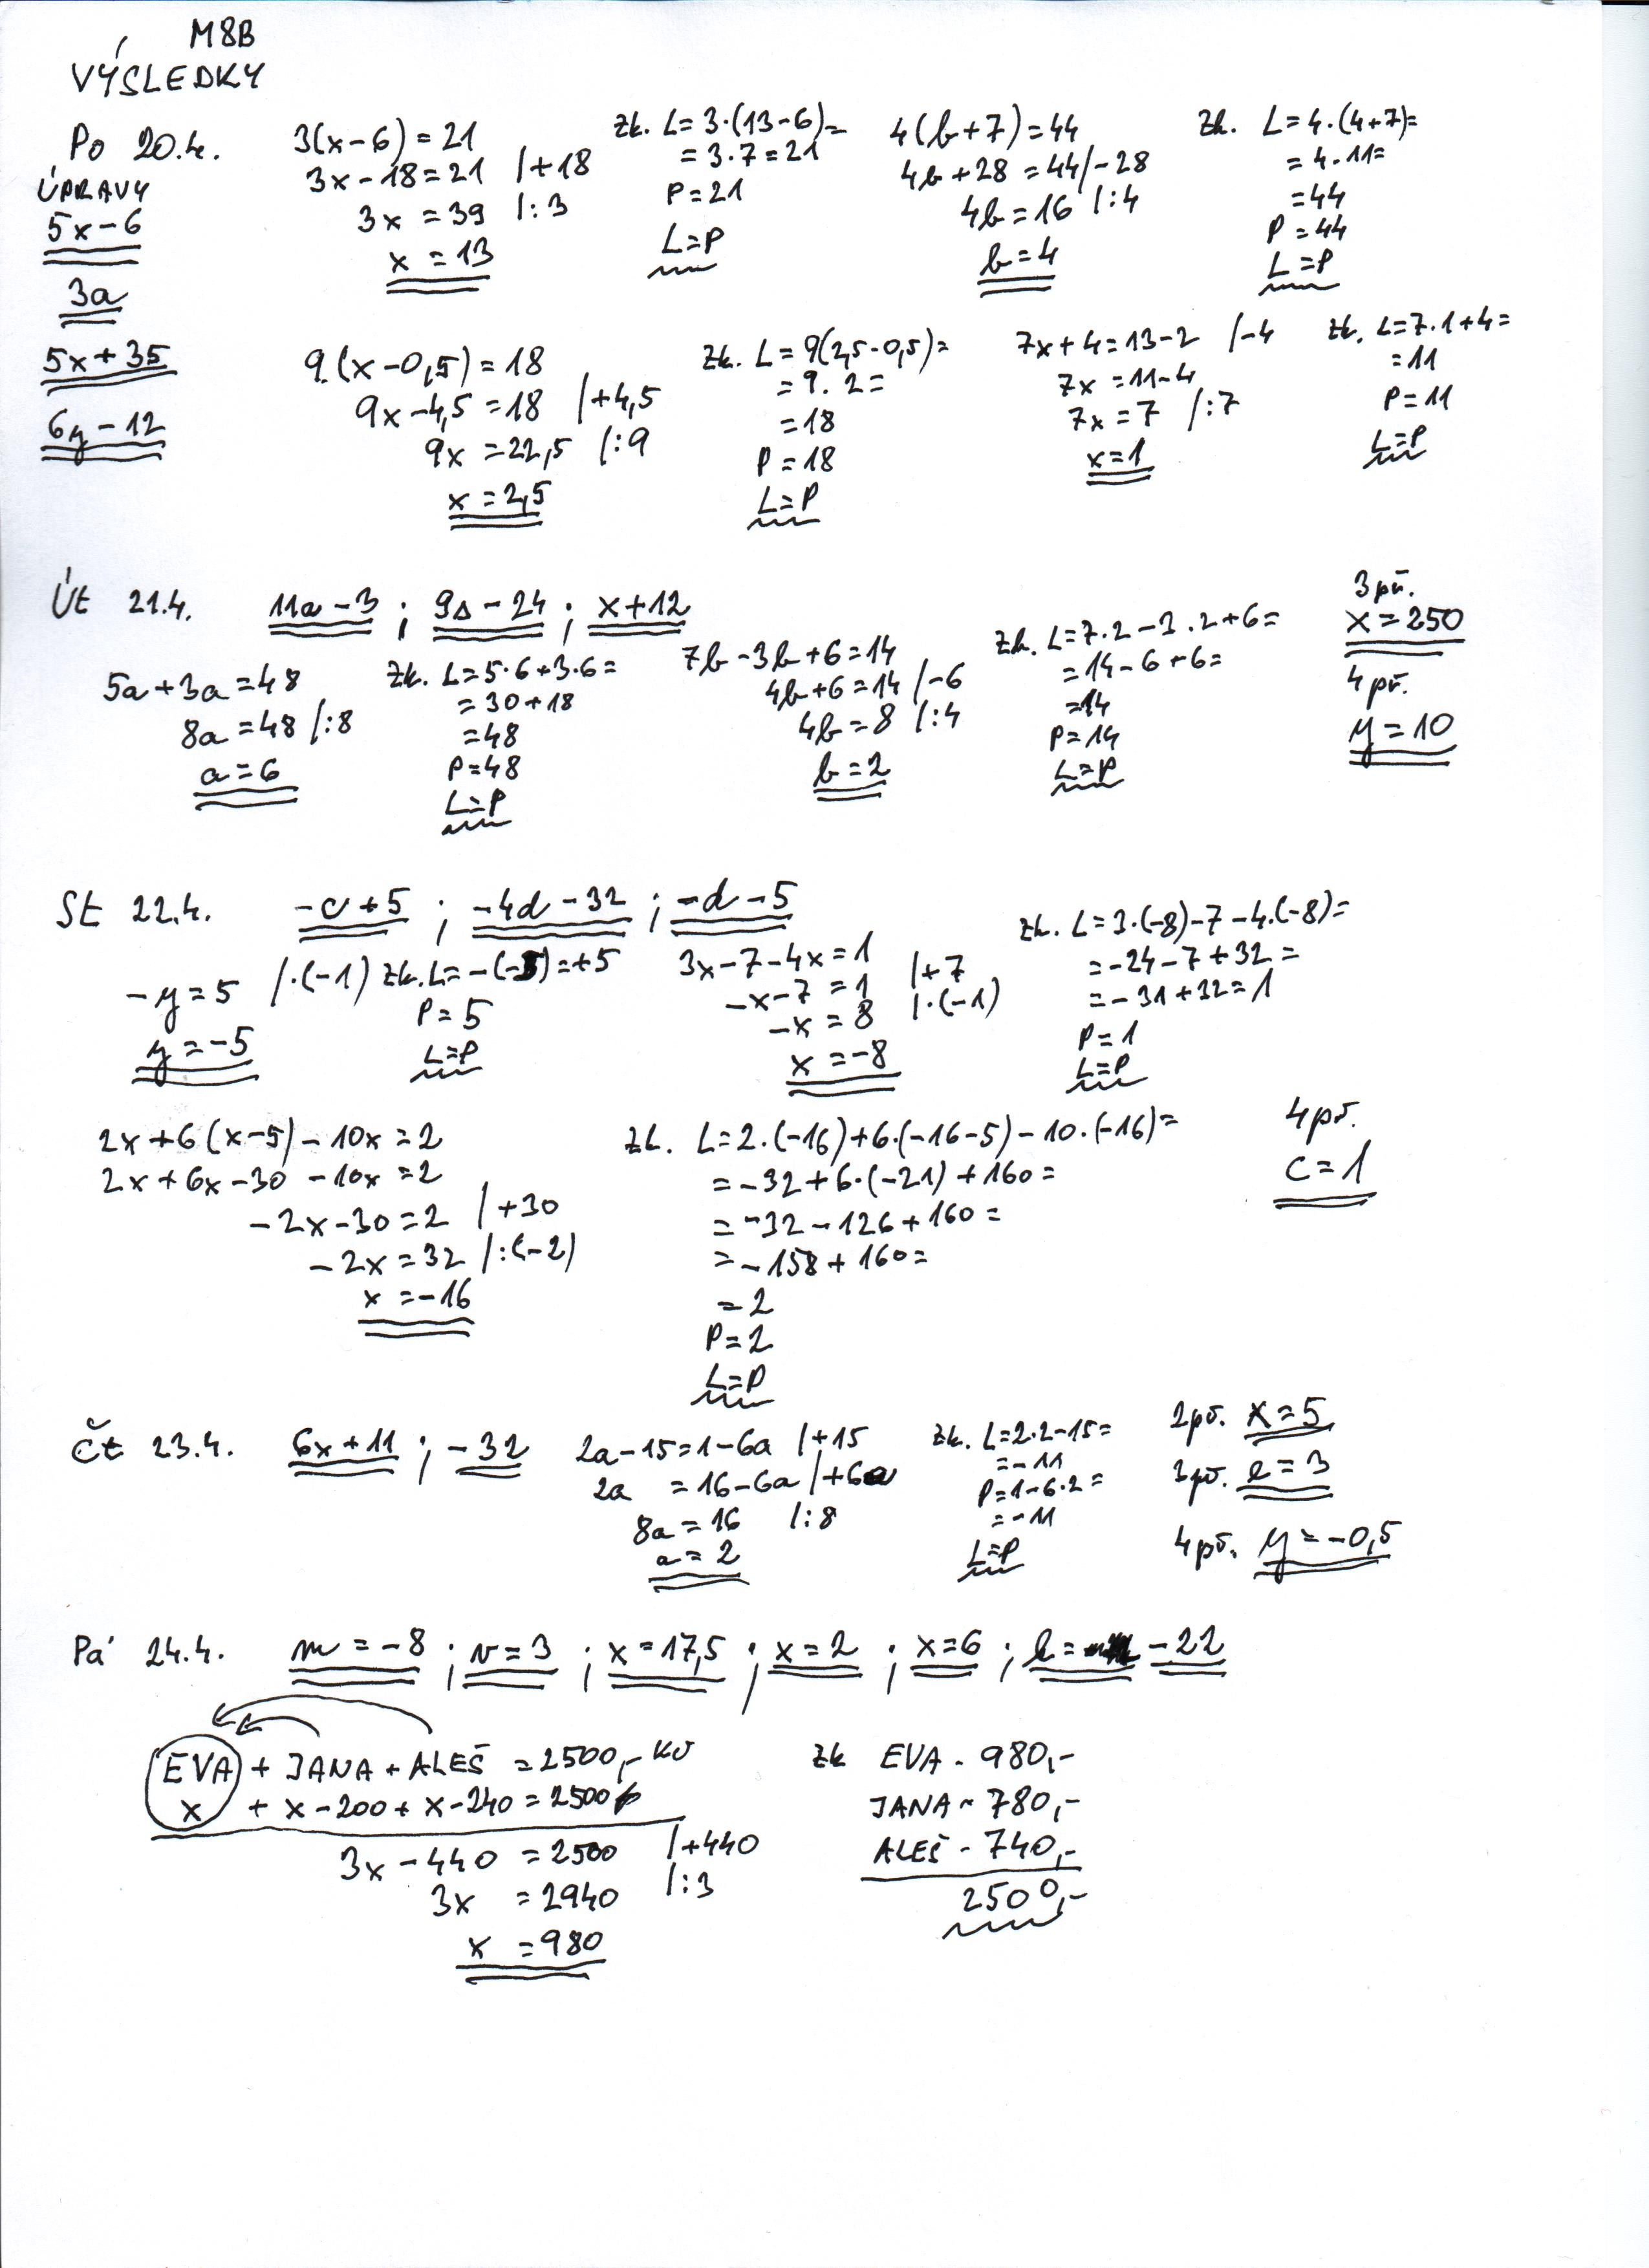 M8B
VÝSLEDKY
Po 20.4.
ÚPRAVY
5x-6
3a
5x+35
6y-12
3(x-6)=21
3x-18=21 /+18
3x=39 /:3
x=13
Zk. L=3·(13-6)=
=3·7=21
P=21
L=P
4(b+7)=44
4b+28=44/-28
4b=16 /:4
b=4
Zk. L=4·(4+7)=
=4·11=
=44
P=44
L=P
9.(x-0,5)=18
9x-4,5=18 /+4,5
9x=22,5 /:9
x=2,5
Zk. L=9(2,5-0,5)=
=9.2=
=18
P=18
L=P
7x+4=13-2 /-4
7x=11-4
7x=7 /:7
x=1
Zk. L=7.1+4=
=11
P=11
L=P
Út 21.4. 11a-3 ; 9s-24 ; x+12
5a+3a=48
8a=48 /:8
a=6
Zk. L=5·6+3·6=
=30+18
=48
P=48
L=P
7b-3b+6=14
4b+6=14 /-6
4b=8 /:4
b=2
Zk. L=7.2-3.2+6=
=14-6+6=
=14
P=14
L=P
3př.
x=250
4př.
y=10
St 22.4. -c+5 ; -4d-32 ; -d-5
-y=5 /·(-1)
y=-5
Zk. L=-(-5)=+5
P=5
L=P
3x-7-4x=1
-x-7=1 /+7
-x=8 /·(-1)
x=-8
Zk. L=3·(-8)-7-4.(-8)=
=-24-7+32=
=-31+32=1
P=1
L=P
2x+6(x-5)-10x=2
2x+6x-30-10x=2
-2x-30=2 /+30
-2x=32 /:(-2)
x=-16
Zk. L=2.(-16)+6.(-16-5)-10.(-16)=
=-32+6·(-21)+160=
=-32-126+160=
=-158+160=
=2
P=2
L=P
4př.
c=1
Čt 23.4. 6x+11 ; -32
2a-15=1-6a /+15
2a =16-6a /+6a
8a=16 /:8
a=2
Zk. L=2.2-15=
=-11
P=1-6·2=
=-11
L=P
2př. x=5
3př. e=3
4př. y=-0,5
Pá 24.4. m=-8 ; v=3 ; x=17,5 ; x=2 ; x=6 ; k= -22
EVA + JANA + ALEŠ = 2500,- Kč
x + x-200 + x-240 = 2500
3x-440 = 2500 /+440
3x =2940 /:3
x =980
Zk EVA - 980,-
JANA - 780,-
ALEŠ - 740,-
2500,-